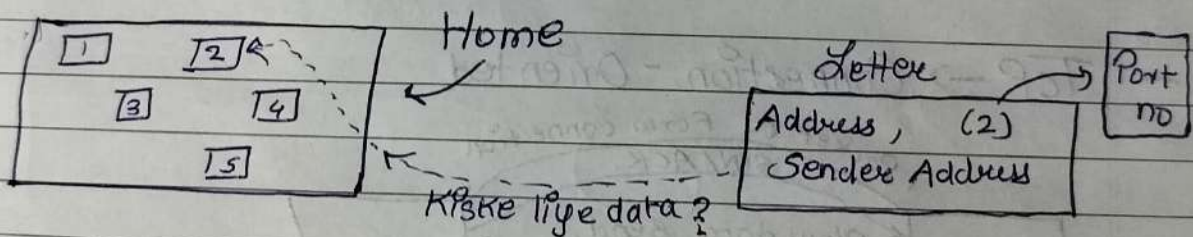 Home
1 2
3 4
5
Letter
Address, (2)
Sender Address
Port
no
Kiske liye data?